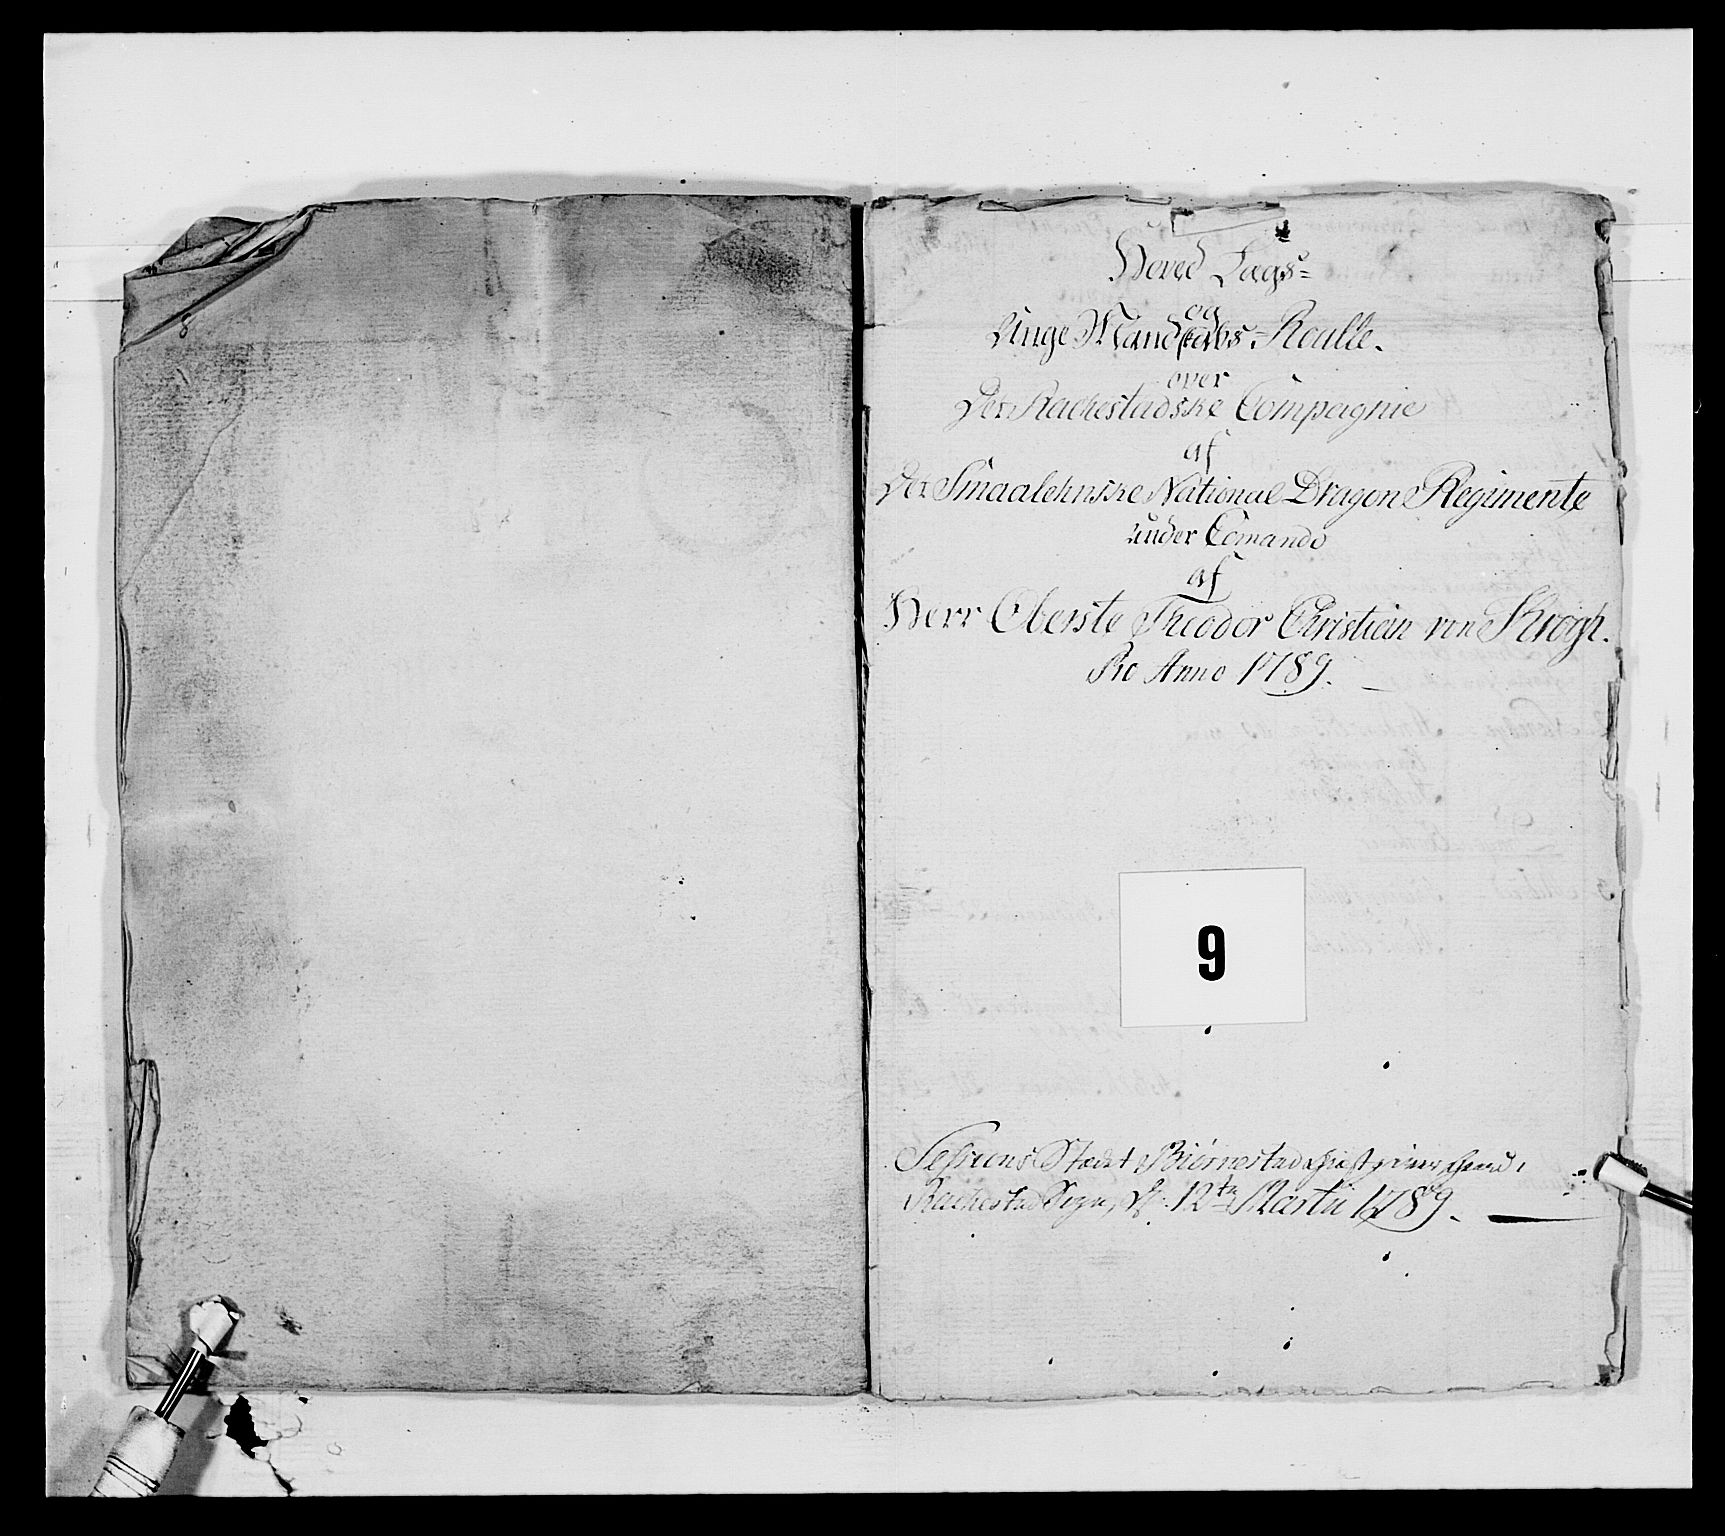 Hoved Lægs-
og
Unge Mandskabs-Roulle.
over
Det Rachestadske Compagnie
af
Det Smaalehnske National Dragon Regimente
under Comando
af
Herr Oberste Theodor Christian von Krogh.
Pro Anno 1789.
9
Sessions Stædet Biørnestad
Rachestad Sogn, d: 12te Martii 1789.